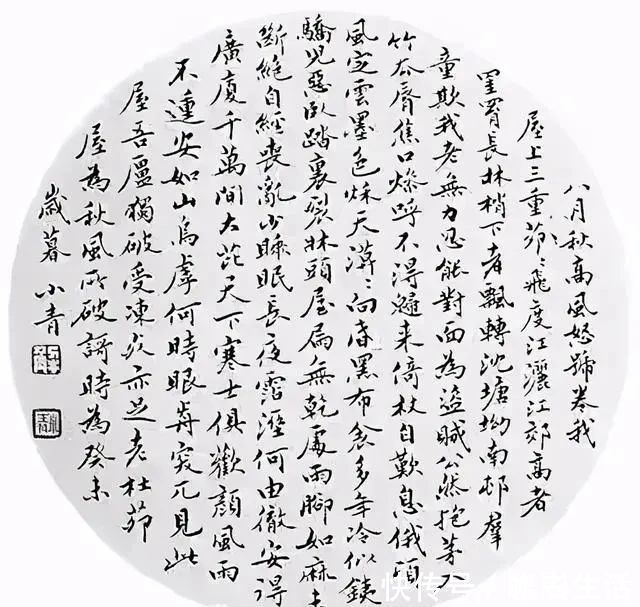 八月秋高風怒號卷我
屋上三重茆〻飛度江灑江郊高者
罥長林梢下者飄轉沈塘坳南邨羣
童欺我老無力忍能對面為盜賊公然抱茅入
竹去脣焦口燥呼不得歸來倚杖自歎息俄頃
風定雲墨色秋天漠〻向昏黑布衾多年冷似鐵
驕兒惡臥踏裏裂牀頭屋漏無乾處雨腳如麻未
斷絕自經喪亂少睡眠長夜霑溼何由徹安得
廣廈千萬間大庇天下寒士俱歡顏風雨
不安如山烏虖何時眼前突兀見此
屋吾廬獨破受凍死亦足老杜茆
屋為秋風所破謌時為癸未
歲暮 小青
快传号